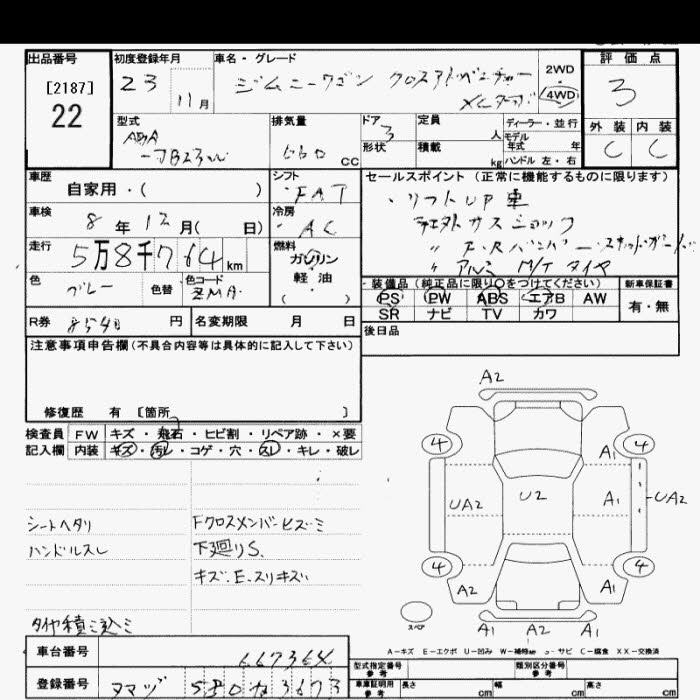 出品番号
[2187]
22
初度登録年月
23
11月
車名・グレード
ジムニーワゴン クロスアドベンチャー
XCターボ
2WD
4WD
評価点
3
外装
内装
C
C
型式
ABA
-JB23W
排気量
660
CC
ドア
3
形状
定員
人
積載
kg
ディーラー・並行
モデル
年式
年
ハンドル 左・右
車歴
自家用・( )
シフト
FAT
セールスポイント(正常に機能するものに限ります)
・リフトUP車
社外サスショック
〃 F.Rバンパー
〃 アルミ M/Tタイヤ
車検
8年12月( 日)
冷房
AC
走行
5万8千764
km
燃料
ガソリン
・
軽油
・
色
グレー
色替
色コード
ZMA
装備品(純正品に限り○をつけてください)
PS
PW
ABS
エアB
AW
SR
ナビ
TV
カワ
新車保証書
有・無
R券
8540
円
名変期限
月
日
後日品
注意事項申告欄(不具合内容等は具体的に記入して下さい)
修復歴 有 [箇所 ]
検査員
記入欄
FW
キズ・飛石・ヒビ割・リペア跡・×要
内装
キズ・汚レ・コゲ・穴・スレ・キレ・破レ
シートヘタリ
ハンドルスレ
タイヤ積ミ込ミ
Fクロスメンバーヒズミ
下廻りS.
キズ.E.スリキズ
A2
4
4
A1
UA2
U2
A1
UA2
4
4
A2
A1
スペア
A1
A2
A1
A-キズ E-エクボ U-凹み W-補修跡 S-サビ C-腐食 XX-交換済
車台番号
667364
登録番号
タマツ゛ 580 な 3673
型式指定番号
参考
類別区分番号
参考
車庫証明用
参考
長さ
cm
幅
cm
高さ
cm